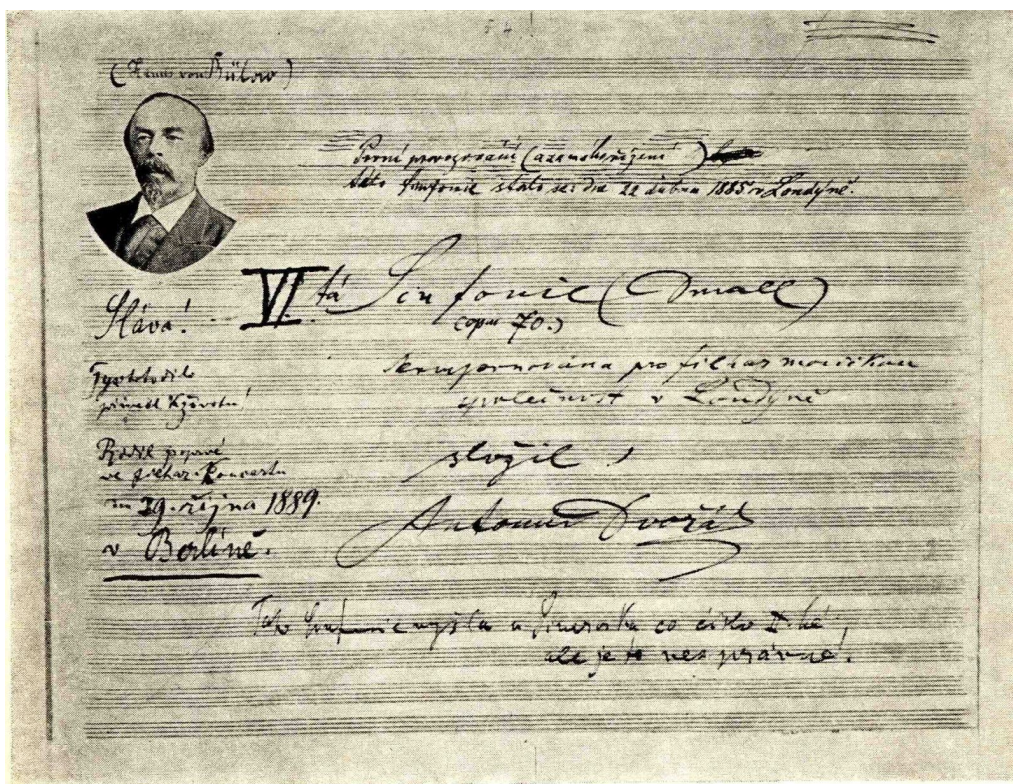 (Hans von Bülow)
První provozování (a za mého řízení)
této Sinfonie stalo se: dne 22 dubna 1885 v Londýně.
VI. tá Sinfonie (Dmoll)
(opus 70.)
Sláva!
komponována pro filharmonickou
společnost v Londýně
přivedl k životu!
složil
Řídil poprvé
ve filhar. Koncertu
29. října 1889.
v Berlíně.
Antonín Dvořák
Tato Sinfonie vyšla u Simrocka co číslo
ale je to nesprávné!